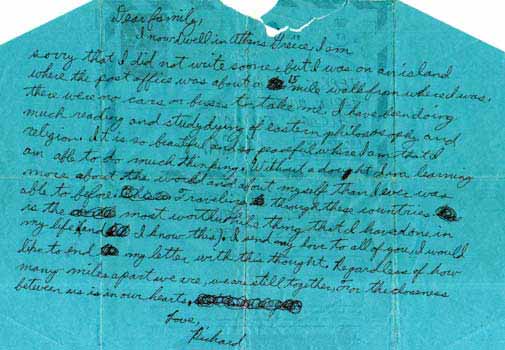 Dear family,
I now dwell in Athens Greece, I am
sorry that I did not write sooner, but I was on an island
where the post office was about a 15 mile walk from where I was.
there were no cars or buses to take me. I have been doing
much reading and studydying of eastern philosophy and
religion. It is so beautiful and so peaceful where I am that I
am able to do much thinking. Without a dought I am learning
more about the world and about myself than I ever was
able to before. Traveling through these countries
is the most worthwhile thing that I have done in
my life (and I know this). I send my love to all of you, I would
like to end my letter with this thought. Regardless of how
many miles apart we are, we are still together, for the closeness
between us is in our hearts.
Love,
Richard